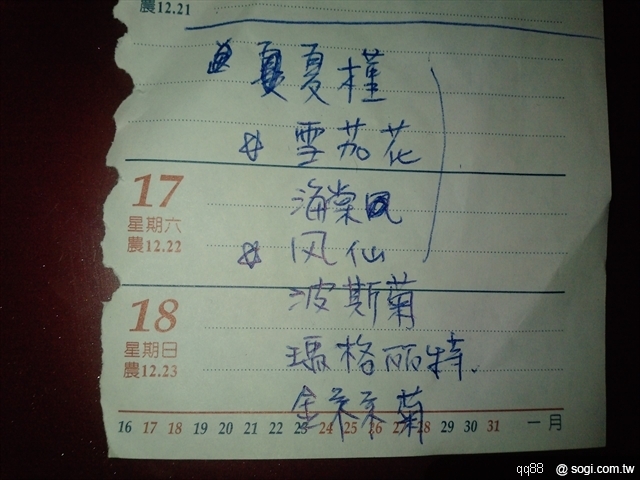 農12.21
夏夏槿
雪茄花
17
星期六
農12.22
海棠
风仙
波斯菊
18
星期日
農12.23
瑪格丽特.
金桼桼菊
16 17 18 19 20 21 22 23 24 25 26 27 28 29 30 31 一月
qq88 @ sogi.com.tw